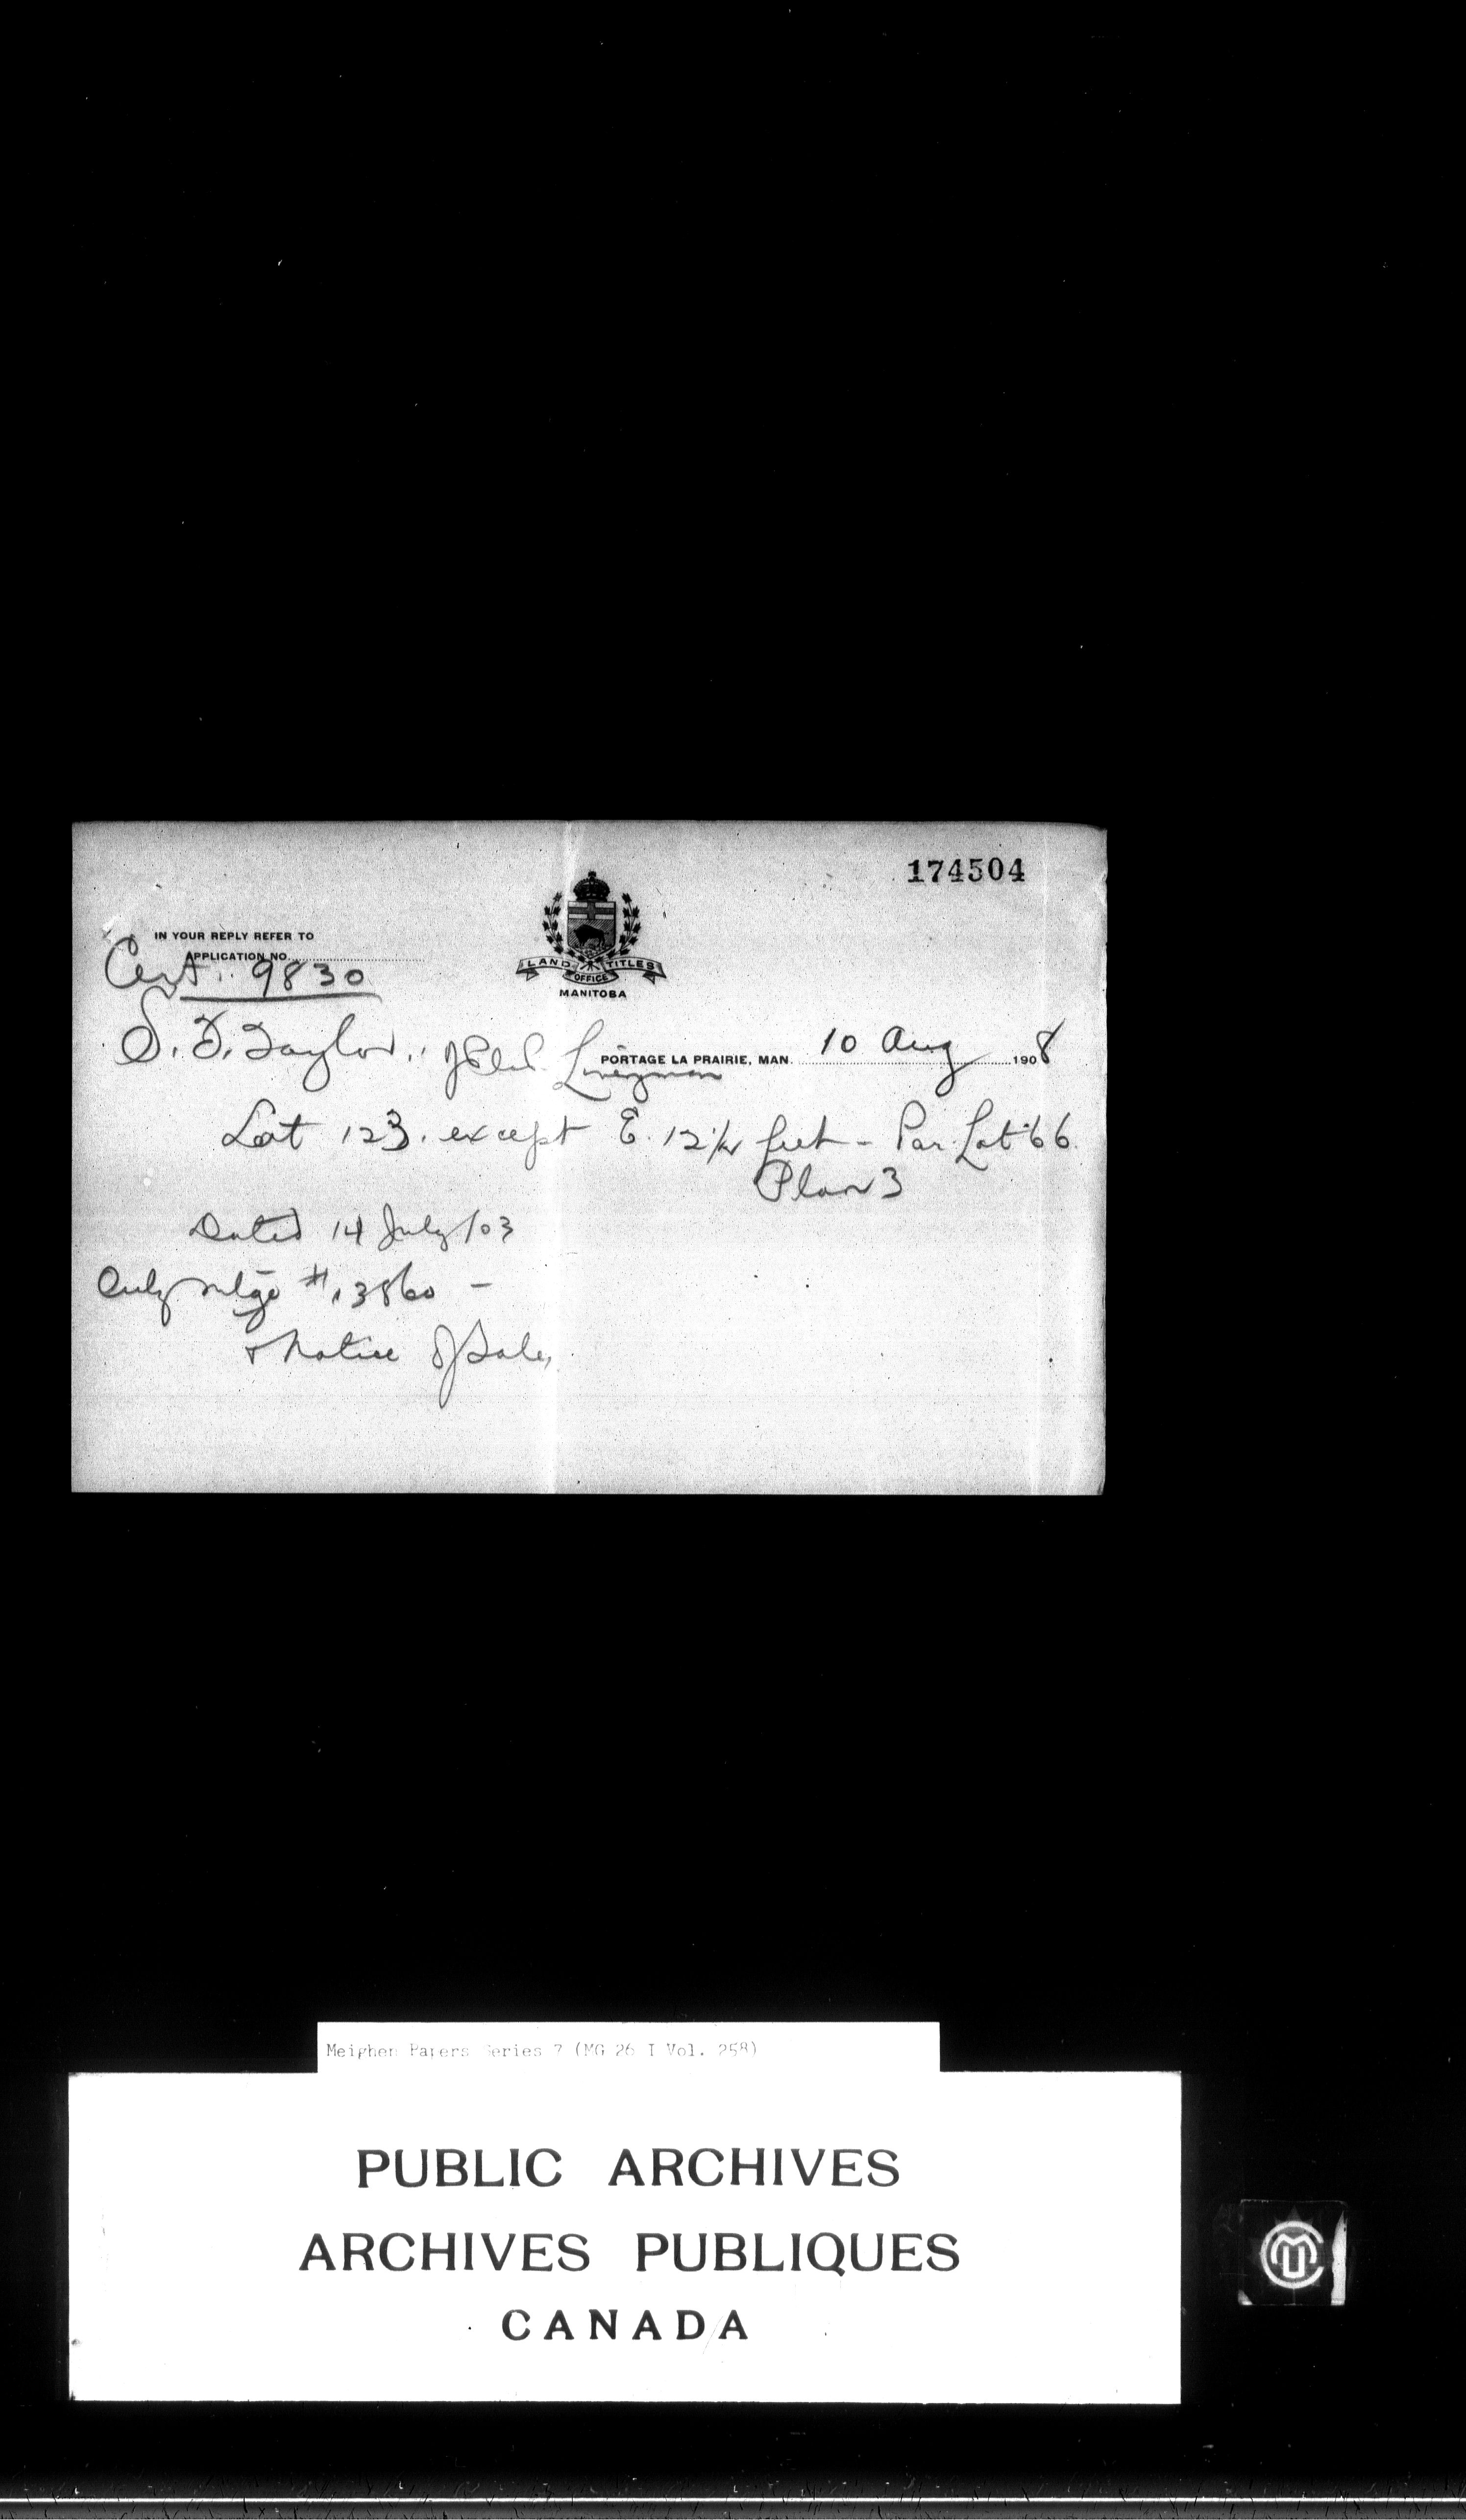 174504
IN YOUR REPLY REFER TO
APPLICATION NO.
Cert. 9830
LAND TITLES
OFFICE
MANITOBA
S. F. Taylor, of
PORTAGE LA PRAIRIE, MAN. 10 Aug 1908
Lot 123. except E. 12½ feet - Par. Lot 66.
Plan 3
Dated 14 July/03
Only mtge # 13860 -
& Notice of Sale,
Meighen Papers Series 7 (MG 26 I Vol. 258)
PUBLIC ARCHIVES
ARCHIVES PUBLIQUES
CANADA